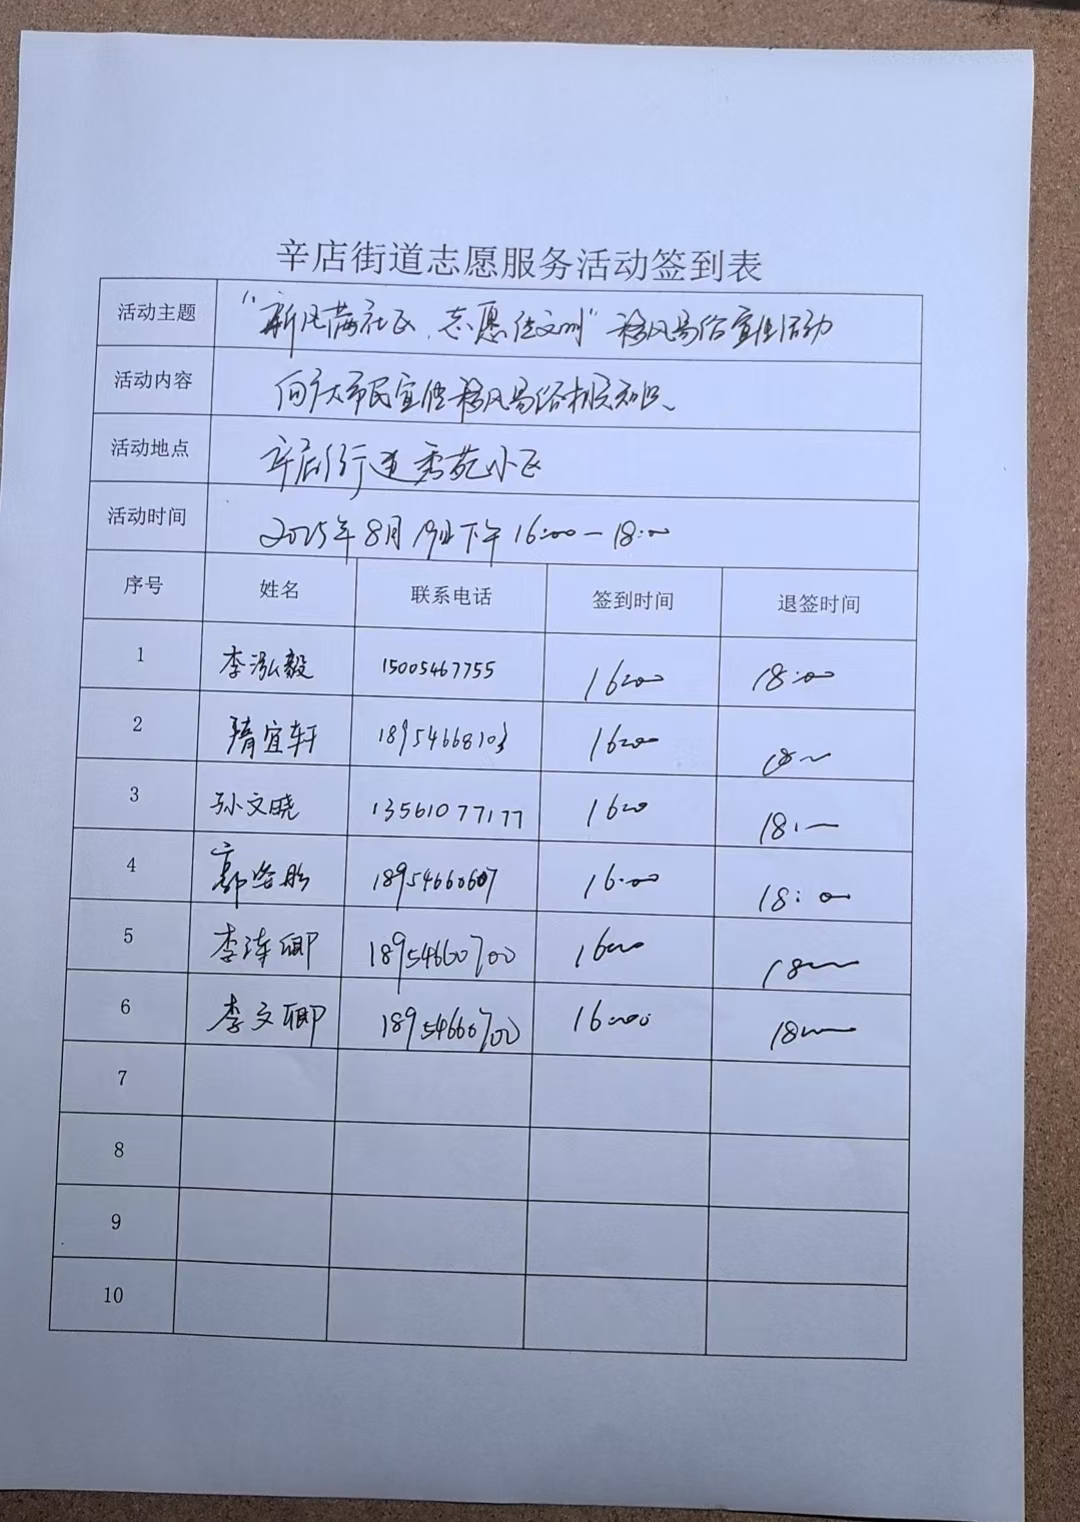 辛店街道志愿服务活动签到表
活动主题 "新风满社区，志愿传文明"移风易俗宣传活动
活动内容 向广大市民宣传移风易俗相关知识、
活动地点 辛店街道秀苑小区
活动时间 2025年8月19日下午16:00—18:00
序号 姓名 联系电话 签到时间 退签时间
1 李泓毅 15005467755 16:00 18:00
2 隋宜轩 18954668103 16:00 18:00
3 孙文晓 13561077177 16:00 18:00
4 郭 18954660607 16:00 18:00
5 李 卿 18954660700 16:00 18:00
6 李文卿 18954660700 16:00 18:00
7
8
9
10